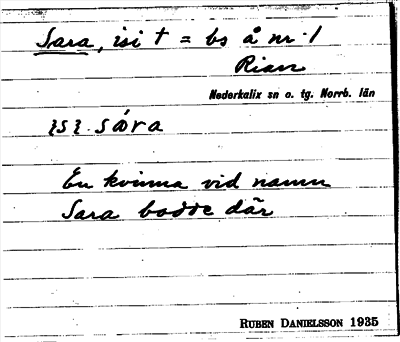 Sara, isi t = bs å nr 1
Rian
Nederkalix sn o. tg. Norrb. län
En kvinna vid namn
Sara bodde där
RUBEN DANIELSSON 1935